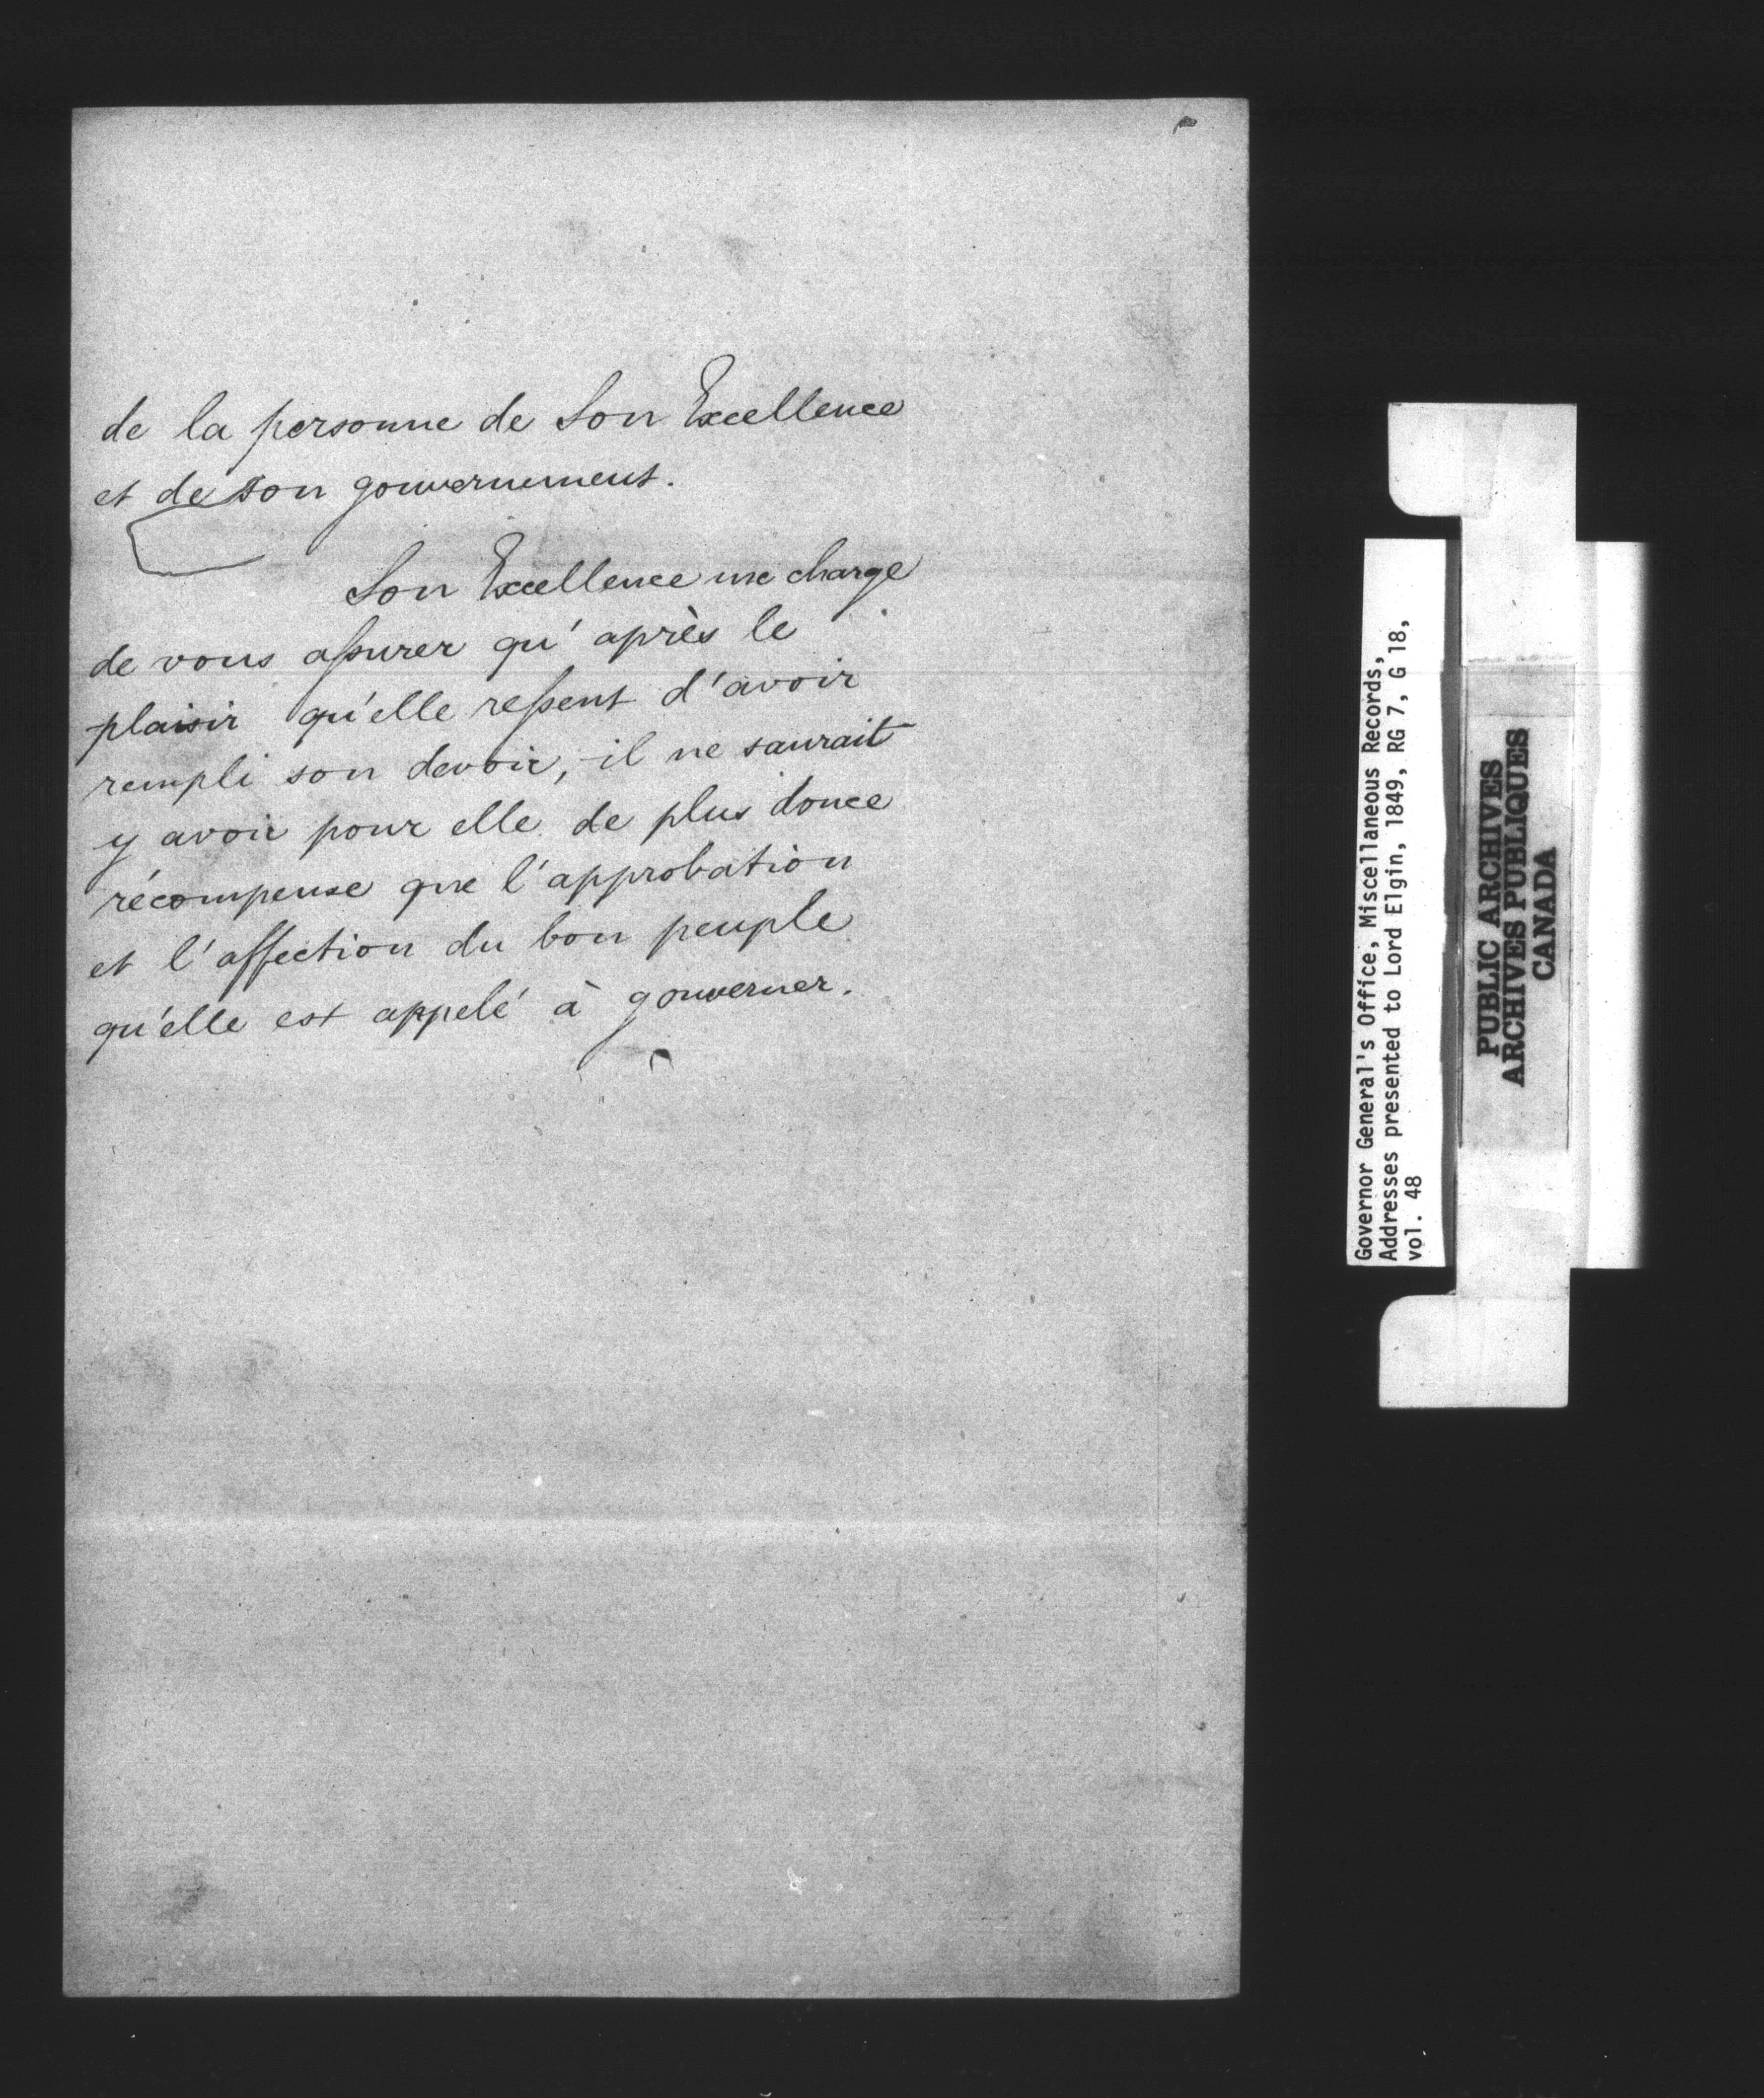 de la personne de Son Excellence
et de son gouvernement.
Son Excellence me charge
de vous assurer qu'après le
plaisir qu'elle ressent d'avoir
rempli son devoir, il ne saurait
y avoir pour elle de plus douce
récompense que l'approbation
et l'affection du bon peuple
qu'elle est appelé à gouverner.
Governor General's Office, Miscellaneous Records,
Addresses presented to Lord Elgin, 1849, RG 7, G 18,
vol. 48
PUBLIC ARCHIVES
ARCHIVES PUBLIQUES
CANADA